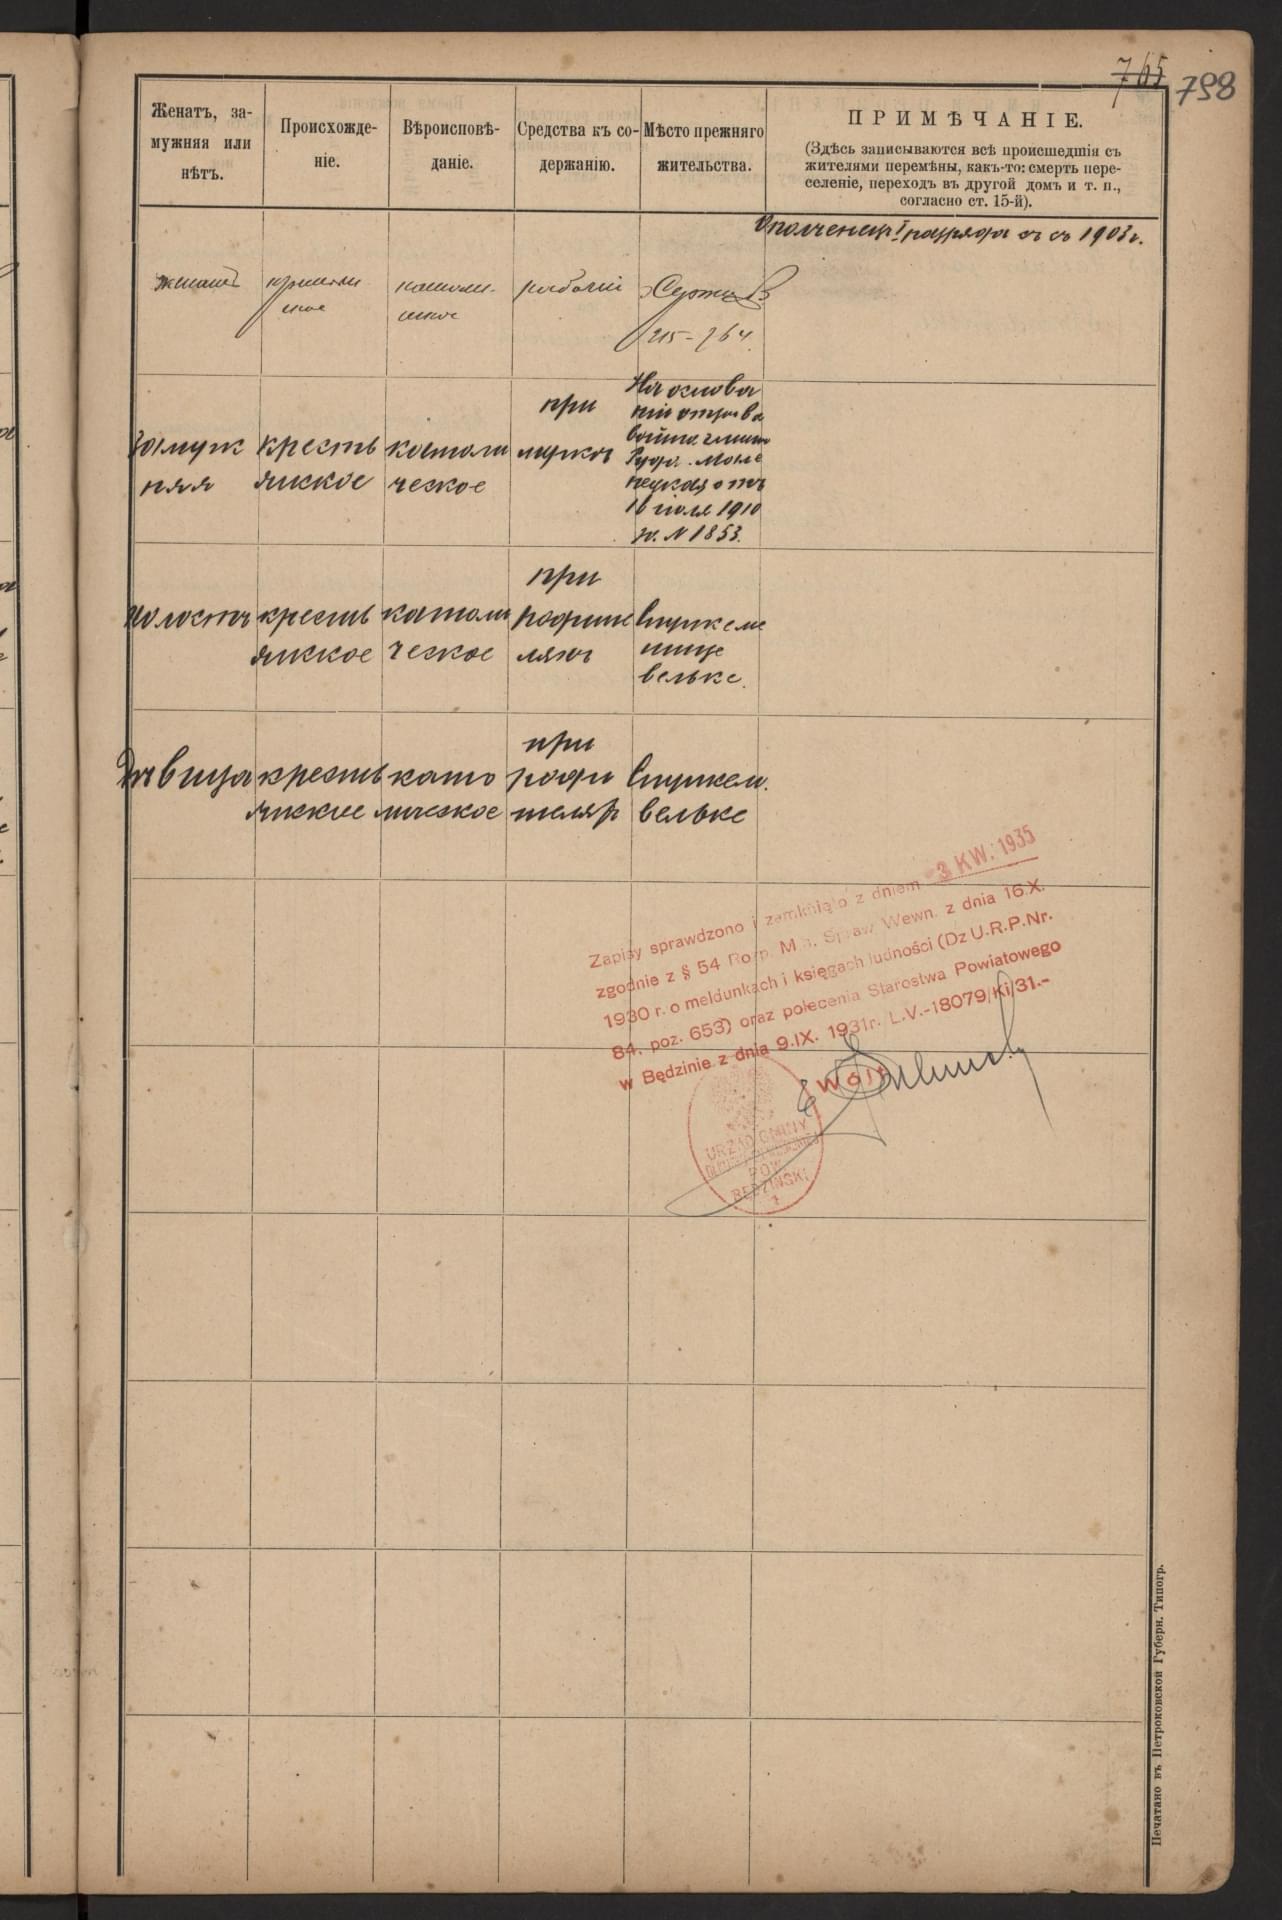 765
798
Женатъ, за-
мужняя или
нѣтъ.
Происхожде-
ніе.
Вѣроисповѣ-
даніе.
Средства къ со-
держанію.
Мѣсто прежняго
жительства.
ПРИМѢЧАНІЕ.
(Здѣсь записываются всѣ происшедшія съ
жителями перемѣны, какъ-то: смерть пере-
селеніе, переходъ въ другой домъ и т. п.,
согласно ст. 15-й).
Ополченецъ I разряда съ 1903 г.
женатъ
католи-
ческое
рабочій
На основа
ніи
16 іюля 1910
г. N 1853.
замуж
няя
кресть
янское
католи
ческое
при
мужѣ
холостъ
кресть
янское
католи
ческое
при
родите
ляхъ
вельке.
Дѣвица
кресть
янское
като
лическое
при
роди
теляхъ
вельке
Zapisy sprawdzono i zamknięto z dniem -3 KW. 1935
zgodnie z § 54 Rozp. Min. Spraw Wewn. z dnia 16.X.
1930 r. o meldunkach i księgach ludności (Dz U.R.P.Nr.
84, poz. 653) oraz polecenia Starostwa Powiatowego
w Będzinie z dnia 9.IX. 1931r. L.V.-18079/Ki/31.-
Wójt
URZĄD GMINY
POW.
BĘDZIŃSKI
Печатано въ Петроковской Губерн. Типогр.